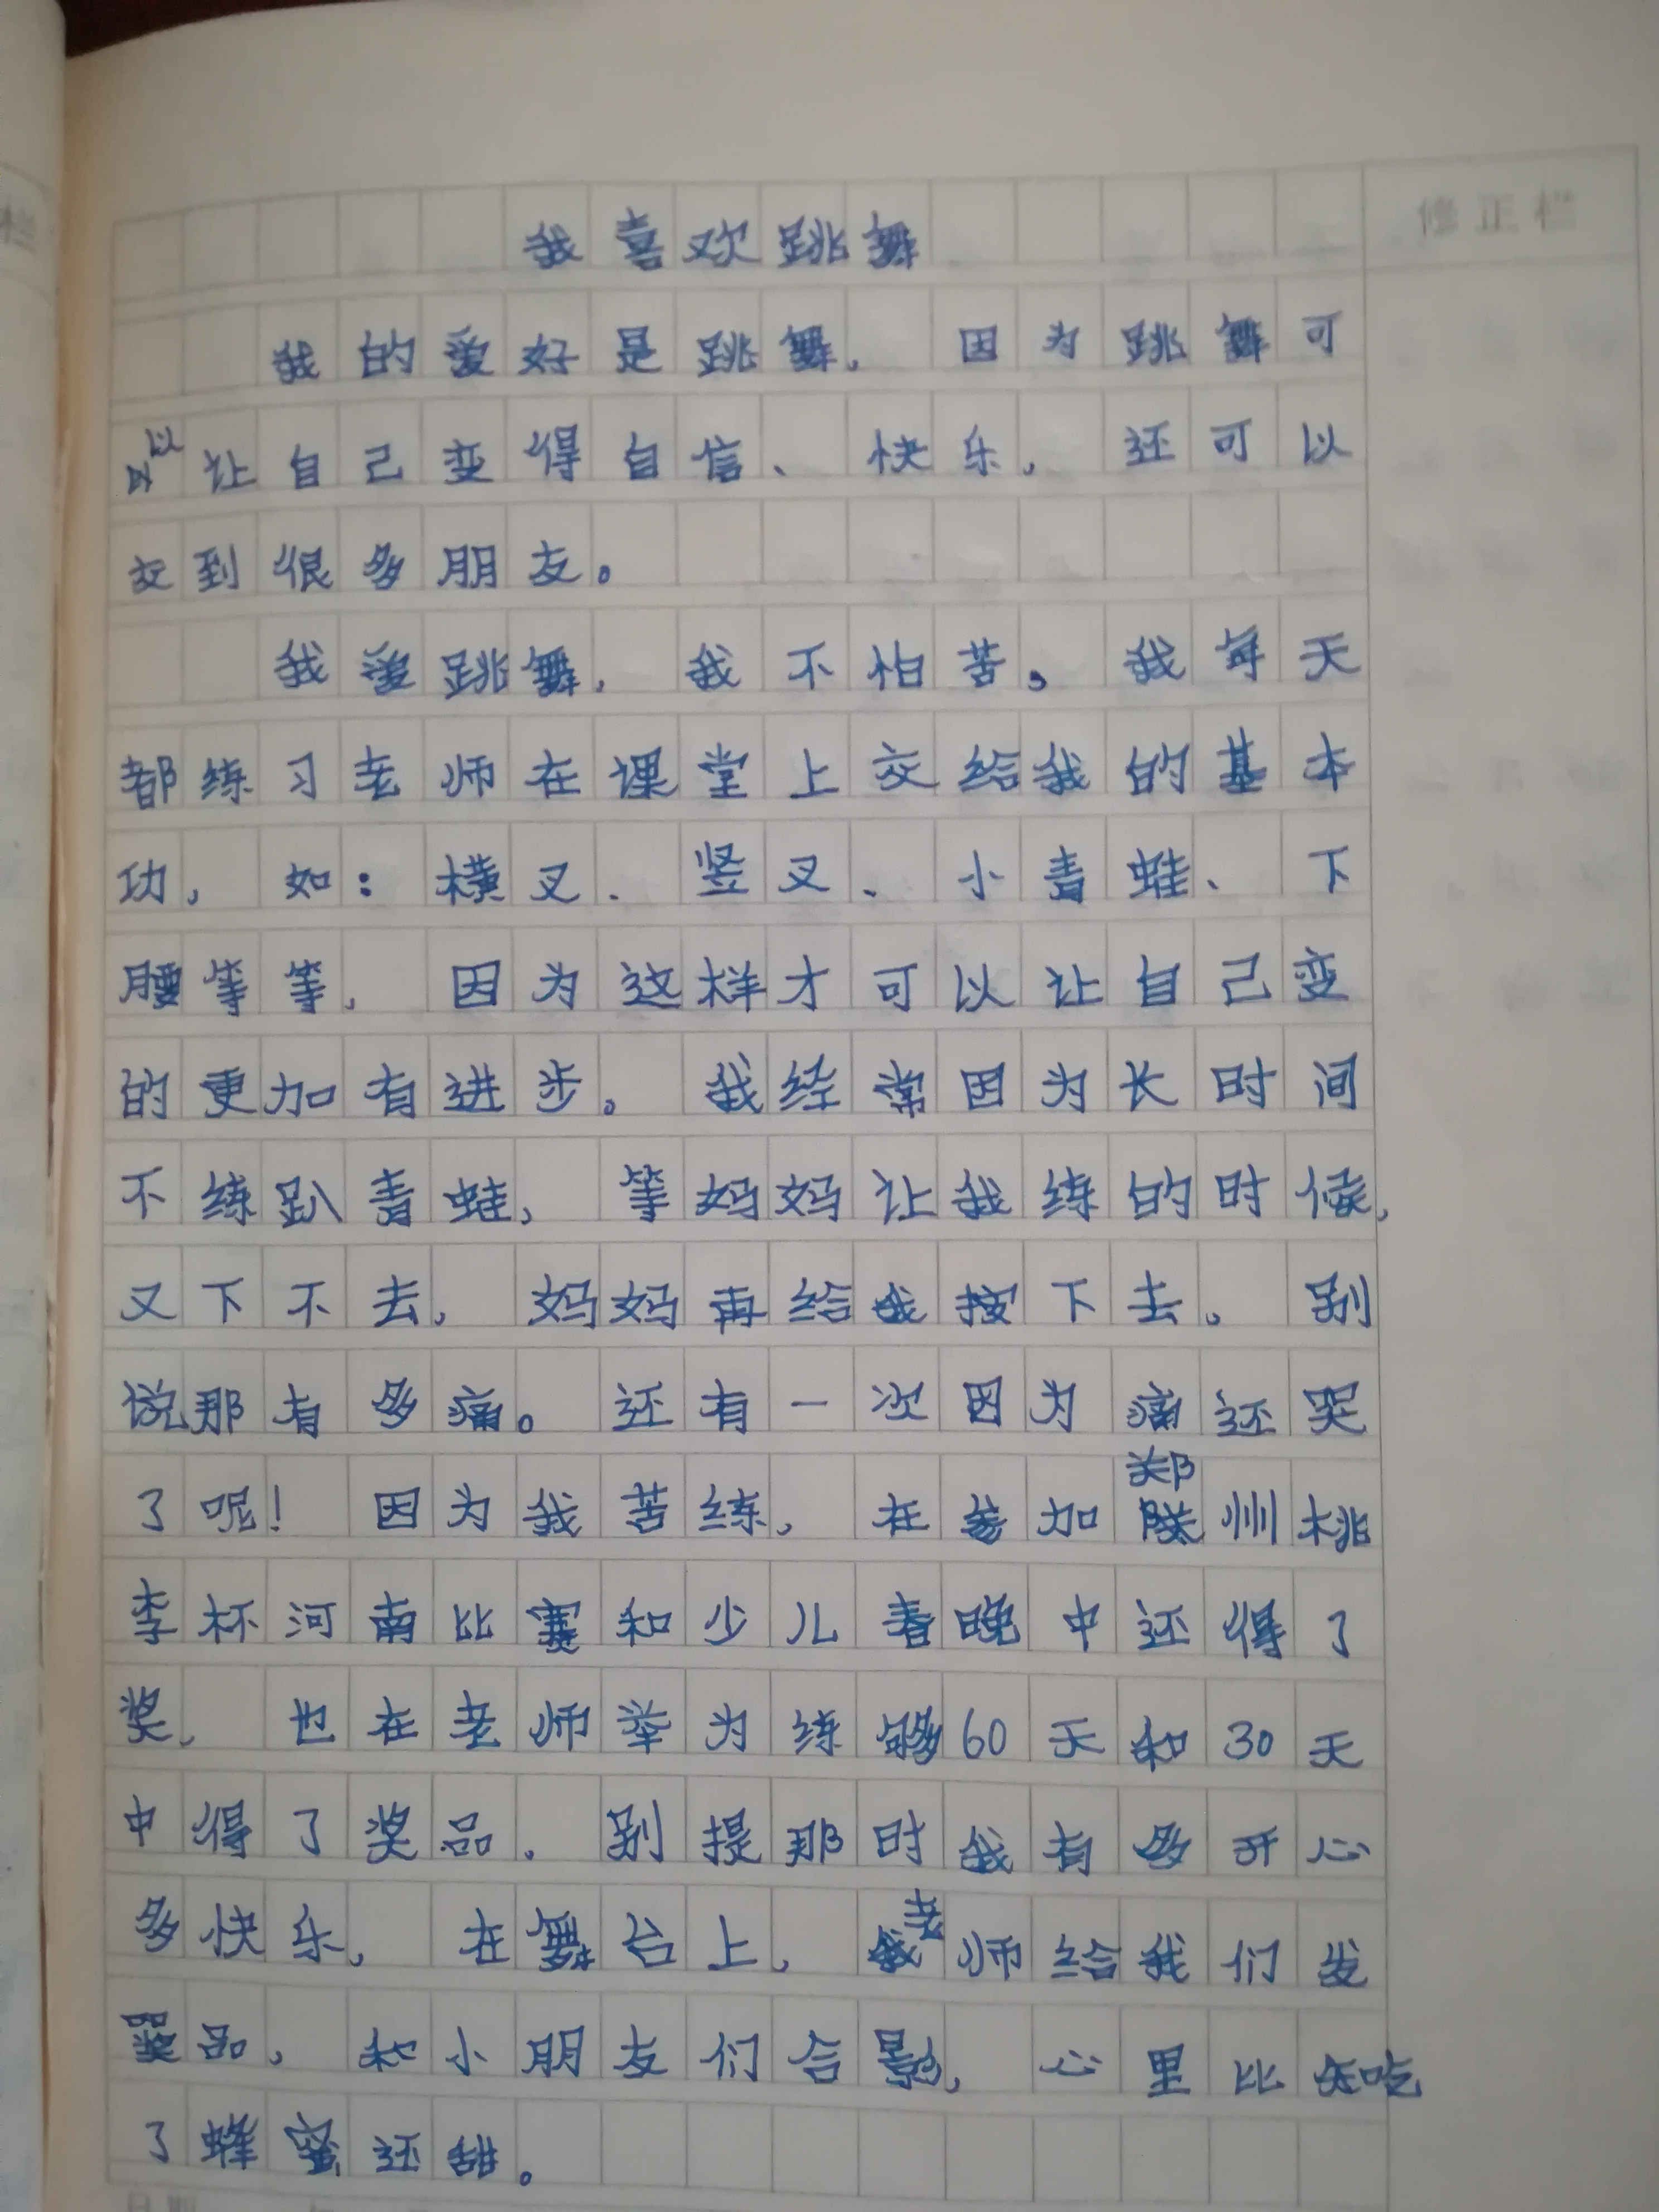 修正栏
我喜欢跳舞
我的爱好是跳舞，因为跳舞可
以让自己变得自信、快乐，还可以
交到很多朋友。
我爱跳舞，我不怕苦。我每天
都练习老师在课堂上交给我的基本
功，如：横叉、竖叉、小青蛙、下
腰等等，因为这样才可以让自己变
的更加有进步。我经常因为长时间
不练趴青蛙，等妈妈让我练的时候，
又下不去，妈妈再给我按下去。别
说那有多痛。还有一次因为痛还哭
了呢！因为我苦练，在参加郑州桃
李杯河南比赛和少儿春晚中还得了
奖，也在老师举为练够60天和30天
中得了奖品。别提那时我有多开心
多快乐，在舞台上，老师给我们发
奖品，和小朋友们合影，心里比吃
了蜂蜜还甜。